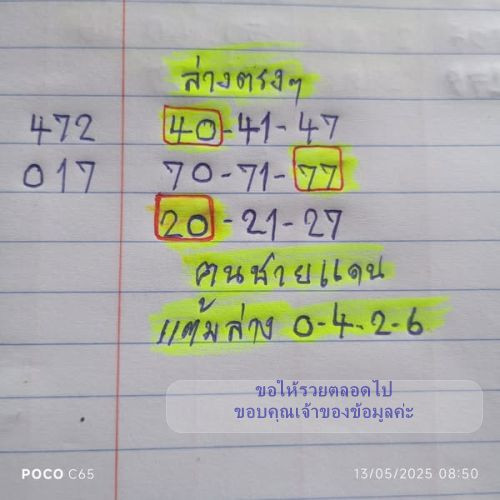 ล่างตรงๆ
472 40-41-47
017 70-71-77
20-21-27
คนชายแดน
แต้มล่าง 0-4-2-6
ขอให้รวยตลอดไป
ขอบคุณเจ้าของข้อมูลค่ะ
POCO C65 13/05/2025 08:50